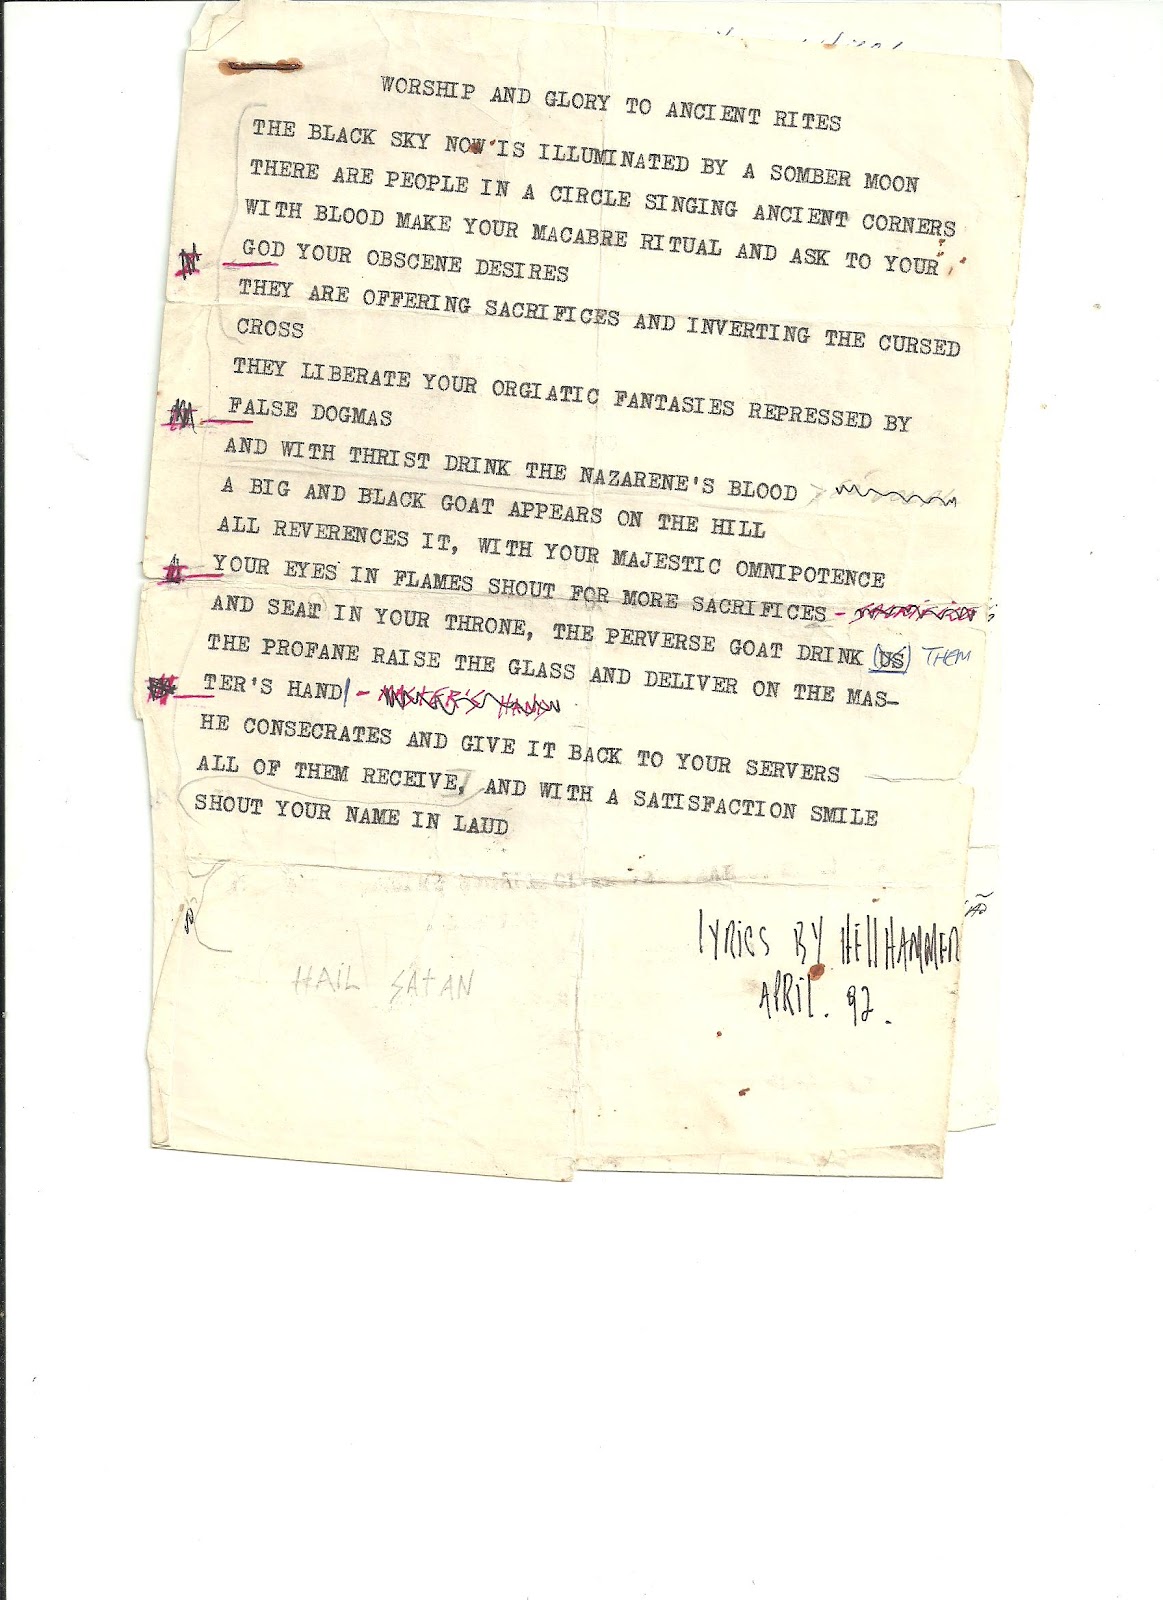 WORSHIP AND GLORY TO ANCIENT RITES
THE BLACK SKY NOW IS ILLUMINATED BY A SOMBER MOON
THERE ARE PEOPLE IN A CIRCLE SINGING ANCIENT CORNERS
WITH BLOOD MAKE YOUR MACABRE RITUAL AND ASK TO YOUR
GOD YOUR OBSCENE DESIRES
THEY ARE OFFERING SACRIFICES AND INVERTING THE CURSED
CROSS
THEY LIBERATE YOUR ORGIATIC FANTASIES REPRESSED BY
FALSE DOGMAS
AND WITH THRIST DRINK THE NAZARENE'S BLOOD
A BIG AND BLACK GOAT APPEARS ON THE HILL
ALL REVERENCES IT, WITH YOUR MAJESTIC OMNIPOTENCE
YOUR EYES IN FLAMES SHOUT FOR MORE SACRIFICES -
AND SEAT IN YOUR THRONE, THE PERVERSE GOAT DRINK (US) THEM
THE PROFANE RAISE THE GLASS AND DELIVER ON THE MAS-
TER'S HAND - MASTER'S HAND
HE CONSECRATES AND GIVE IT BACK TO YOUR SERVERS
ALL OF THEM RECEIVE, AND WITH A SATISFACTION SMILE
SHOUT YOUR NAME IN LAUD
LYRICS BY HELLHAMMER
HAIL SATAN
APRIL. 92.